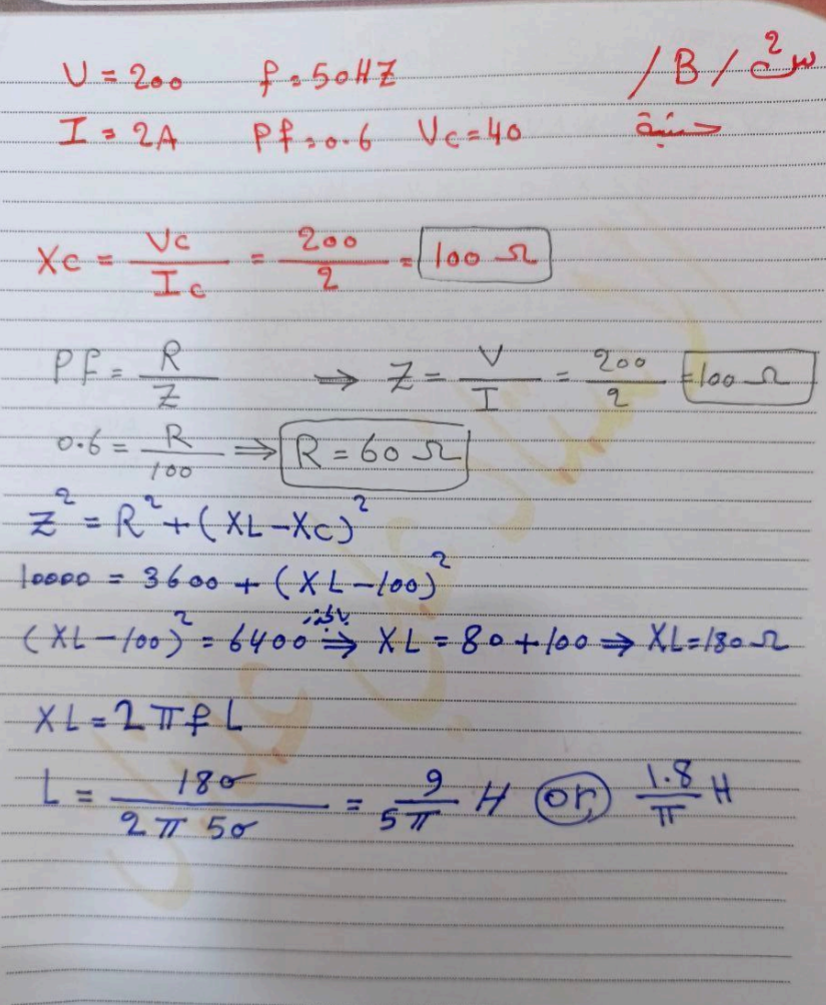 س2 / B /
U = 200 f = 50HZ
I = 2A Pf = 0.6 Vc = 40
XC = Vc / Ic = 200 / 2 = 100 Ω
Pf = R / Z ⇒ Z = V / I = 200 / 2 = 100 Ω
0.6 = R / 100 ⇒ R = 60 Ω
Z² = R² + (XL-XC)²
10000 = 3600 + (XL-100)²
(XL-100)² = 6400 بالجذر ⇒ XL = 80+100 ⇒ XL=180Ω
XL = 2πfL
L = 180 / 2π 50 = 9 / 5π H or 1.8 / π H